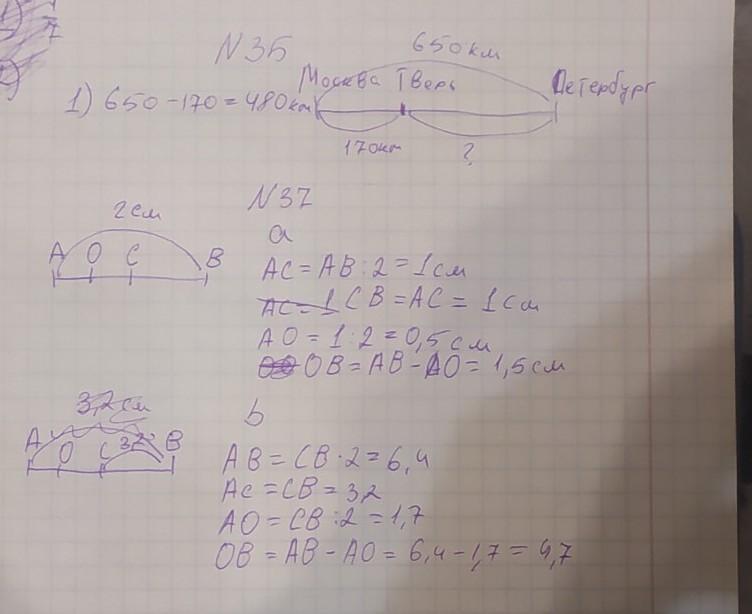 N35
650км
Москва Тверь Петербург
1) 650 - 170 = 480км
170км ?
N37
2см
A O C B
a
AC = AB : 2 = 1см
AC = 1 CB = AC = 1см
AO = 1 : 2 = 0,5см
OB = AB - AO = 1,5см
3,2см
A O C 3,2 B
b
AB = CB · 2 = 6,4
Ac = CB = 3,2
AO = CB : 2 = 1,7
OB = AB - AO = 6,4 - 1,7 = 4,7